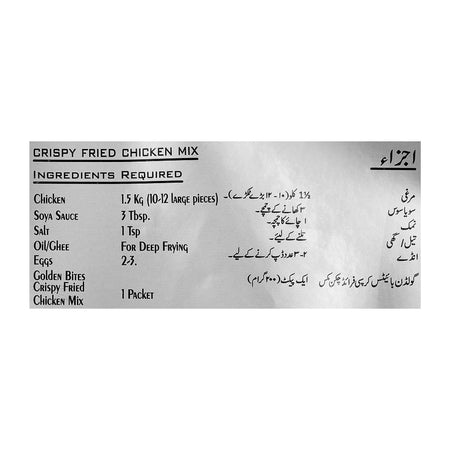 CRISPY FRIED CHICKEN MIX
INGREDIENTS REQUIRED
CHICKEN 1.5 KG (10-12 LARGE PIECES)
SOYA SAUCE 3 TBSP.
SALT 1 TSP
OIL/GHEE FOR DEEP FRYING
EGGS 2-3.
GOLDEN BITES
CRISPY FRIED
CHICKEN MIX 1 PACKET
اجزاء
مرغی ۱½ کلو (۱۰-۱۲ بڑے ٹکڑے)۔
سویا سوس ۳ کھانے کے چمچے۔
نمک ۱ چائے کا چمچہ۔
تیل/گھی تلنے کے لیے۔
انڈے ۲-۳ عدد ڈپ کرنے کے لیے۔
گولڈن بائیٹس کرسپی فرائڈ چکن مکس ایک پیکٹ (۲۰۰ گرام)